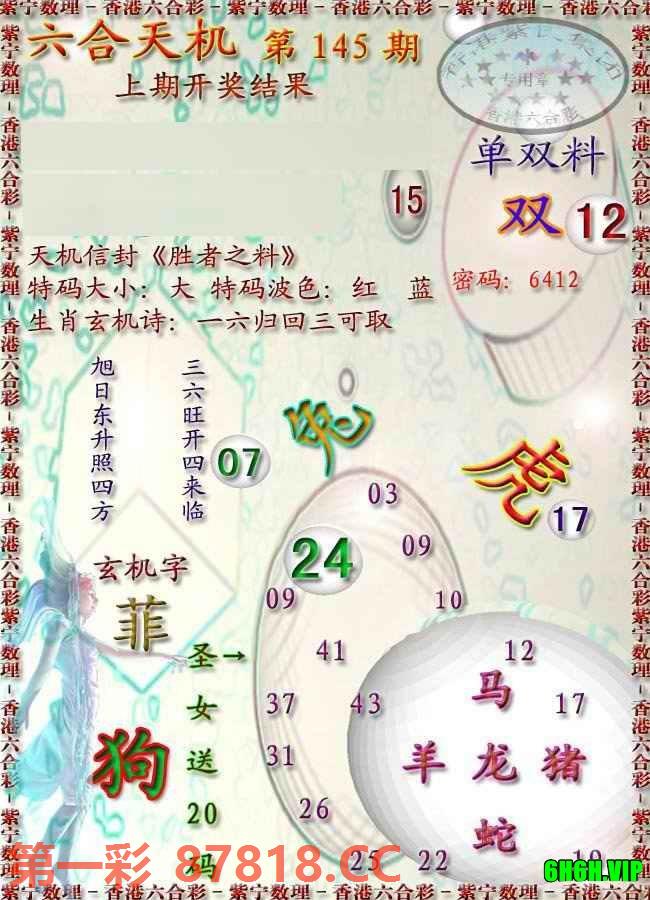 紫宁数理－香港六合彩－紫宁数理－香港六合彩－紫宁数理－香港六合彩
六合天机 第 145 期
上期开奖结果
专用章
香港六合彩
单双料
双 12
15
天机信封《胜者之料》
特码大小：大 特码波色：红 蓝
密码：6412
生肖玄机诗：一六归回三可取
旭日东升照四方
三六旺开四来临
07
兔
虎
17
03
24
09
09
10
玄机字
菲
圣→
女
送
20
码
狗
41
12
37
43
马
17
31
羊 龙 猪
26
蛇
25
22
19
第一彩 87818.CC
6H6H.VIP
紫宁数理－香港六合彩－紫宁数理－香港六合彩－紫宁数理－香港六合彩